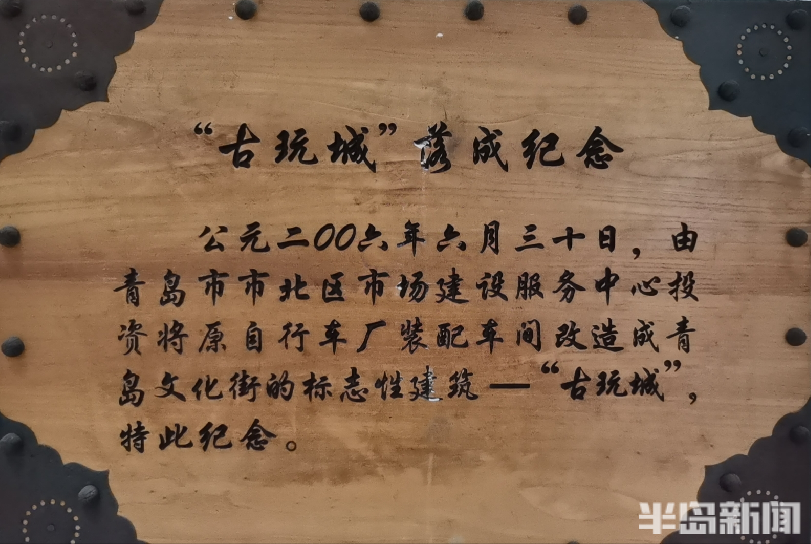 “古玩城”落成纪念
公元二00六年六月三十日，由
青岛市市北区市场建设服务中心投
资将原自行车厂装配车间改造成青
岛文化街的标志性建筑—“古玩城”，
特此纪念。
半岛新闻